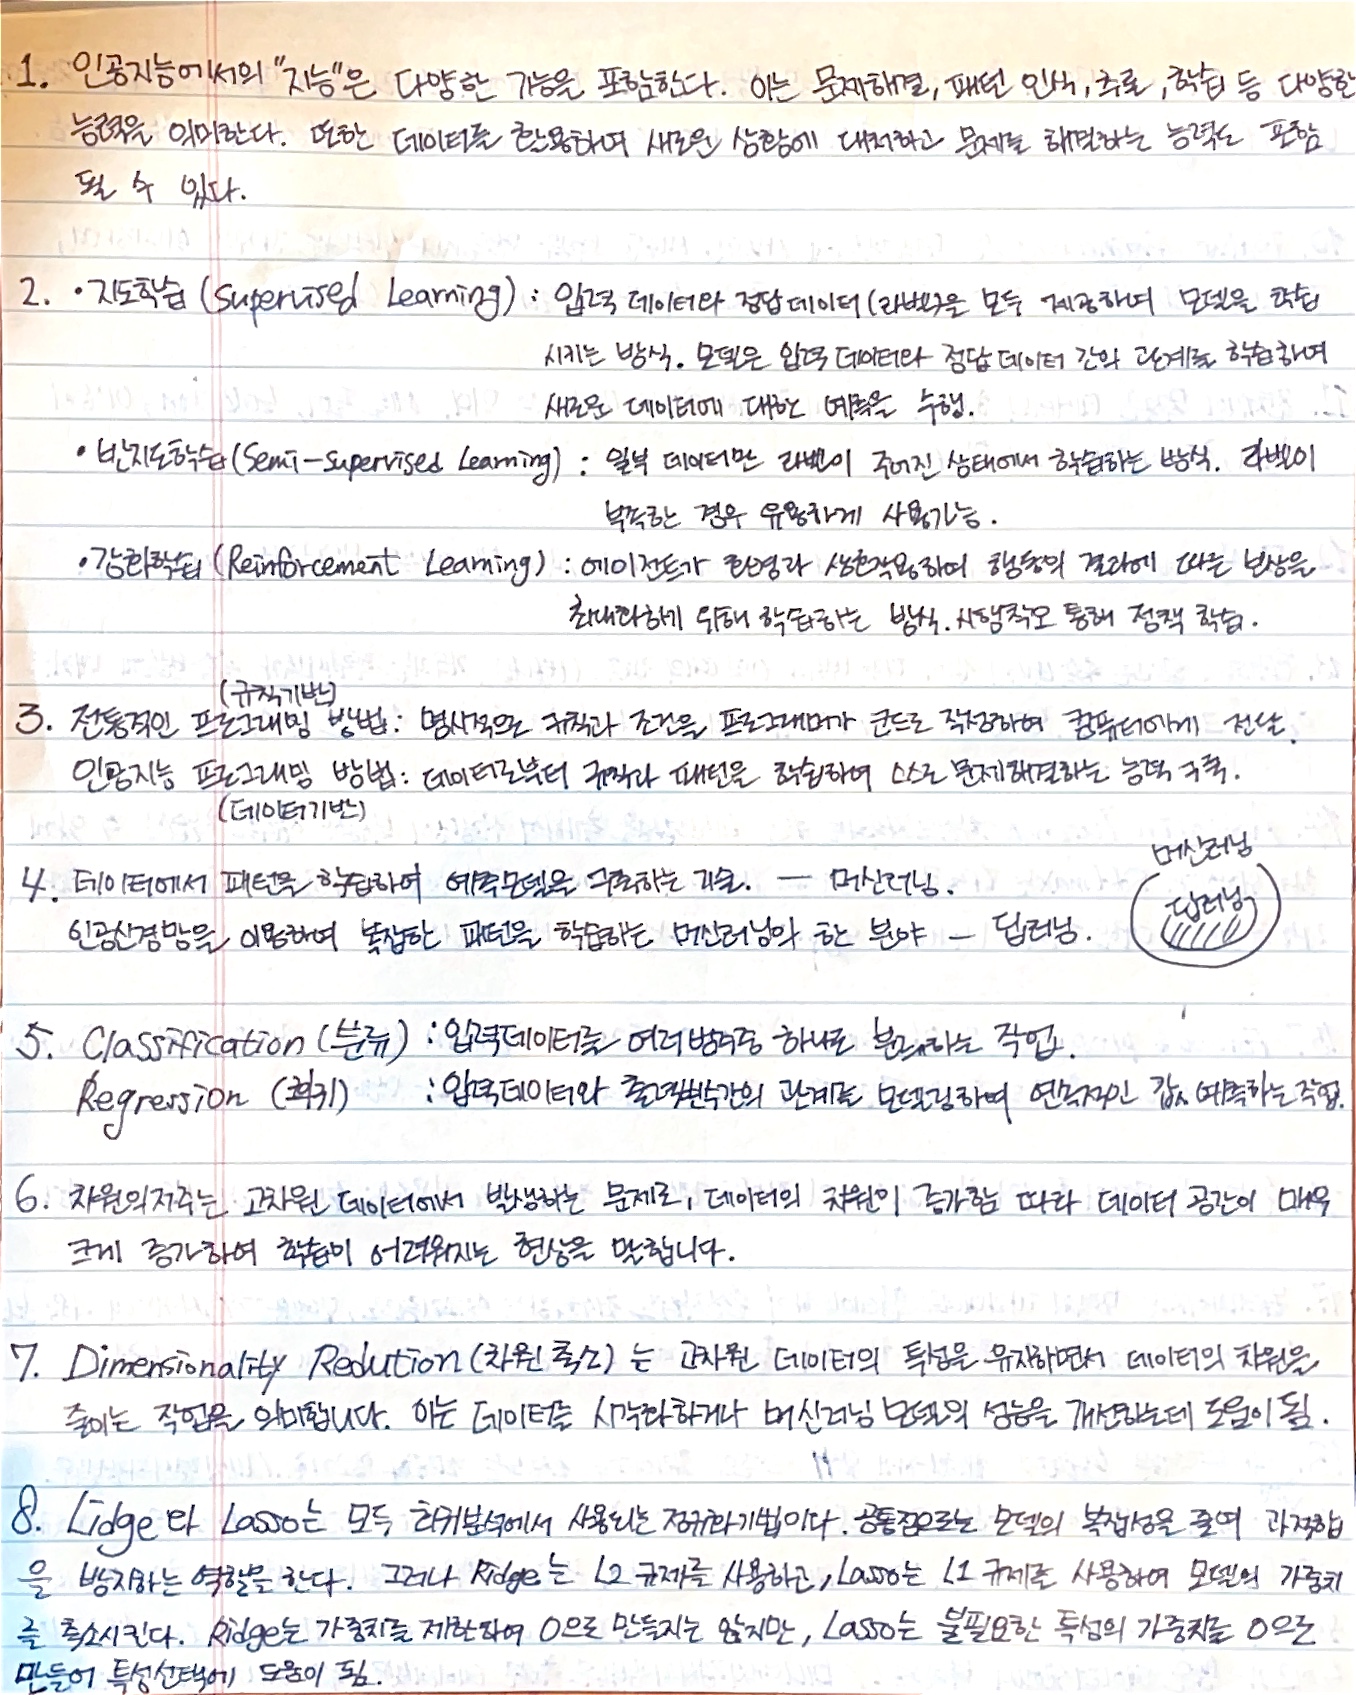 1. 인공지능에서의 "지능"은 다양한 기능을 포함한다. 이는 문제해결, 패턴 인식, 추론, 학습 등 다양한
능력을 의미한다. 또한 데이터를 활용하여 새로운 상황에 대처하고 문제를 해결하는 능력도 포함
될 수 있다.
2. • 지도학습 (Supervised Learning) : 입력 데이터와 정답 데이터(라벨)을 모두 제공하여 모델을 학습
시키는 방식. 모델은 입력 데이터와 정답 데이터 간의 관계를 학습하여
새로운 데이터에 대한 예측을 수행.
• 반지도학습 (Semi-supervised Learning) : 일부 데이터만 라벨이 주어진 상태에서 학습하는 방식. 라벨이
부족한 경우 유용하게 사용가능.
• 강화학습 (Reinforcement Learning) : 에이전트가 환경과 상호작용하여 행동의 결과에 따른 보상을
최대화하기 위해 학습하는 방식. 시행착오 통해 정책 학습.
(규칙기반)
3. 전통적인 프로그래밍 방법 : 명시적으로 규칙과 조건을 프로그래머가 코드로 작성하여 컴퓨터에게 전달.
인공지능 프로그래밍 방법 : 데이터로부터 규칙과 패턴을 학습하여 스스로 문제해결하는 능력 구축.
(데이터기반)
4. 데이터에서 패턴을 학습하여 예측모델을 구축하는 기술. — 머신러닝.
인공신경망을 이용하여 복잡한 패턴을 학습하는 머신러닝의 한 분야 — 딥러닝.
머신러닝
딥러닝
5. Classification (분류) : 입력데이터를 여러 범주중 하나로 분류하는 작업.
Regression (회귀) : 입력데이터와 출력변수간의 관계를 모델링하여 연속적인 값 예측하는 작업.
6. 차원의저주는 고차원 데이터에서 발생하는 문제로, 데이터의 차원이 증가함 따라 데이터 공간이 매우
크게 증가하여 학습이 어려워지는 현상을 말합니다.
7. Dimensionality Redution (차원 축소) 는 고차원 데이터의 특성을 유지하면서 데이터의 차원을
줄이는 작업을 의미합니다. 이는 데이터를 시각화하거나 머신러닝 모델의 성능을 개선하는데 도움이 됨.
8. Lidge와 Lasso는 모두 회귀분석에서 사용되는 정규화기법이다. 공통점으로는 모델의 복잡성을 줄여 과적합
을 방지하는 역할을 한다. 그러나 Ridge는 L2 규제를 사용하고, Lasso는 L1 규제를 사용하여 모델의 가중치
를 축소시킨다. Ridge는 가중치를 제한하여 0으로 만들지는 않지만, Lasso는 불필요한 특성의 가중치를 0으로
만들어 특성선택에 도움이 됨.